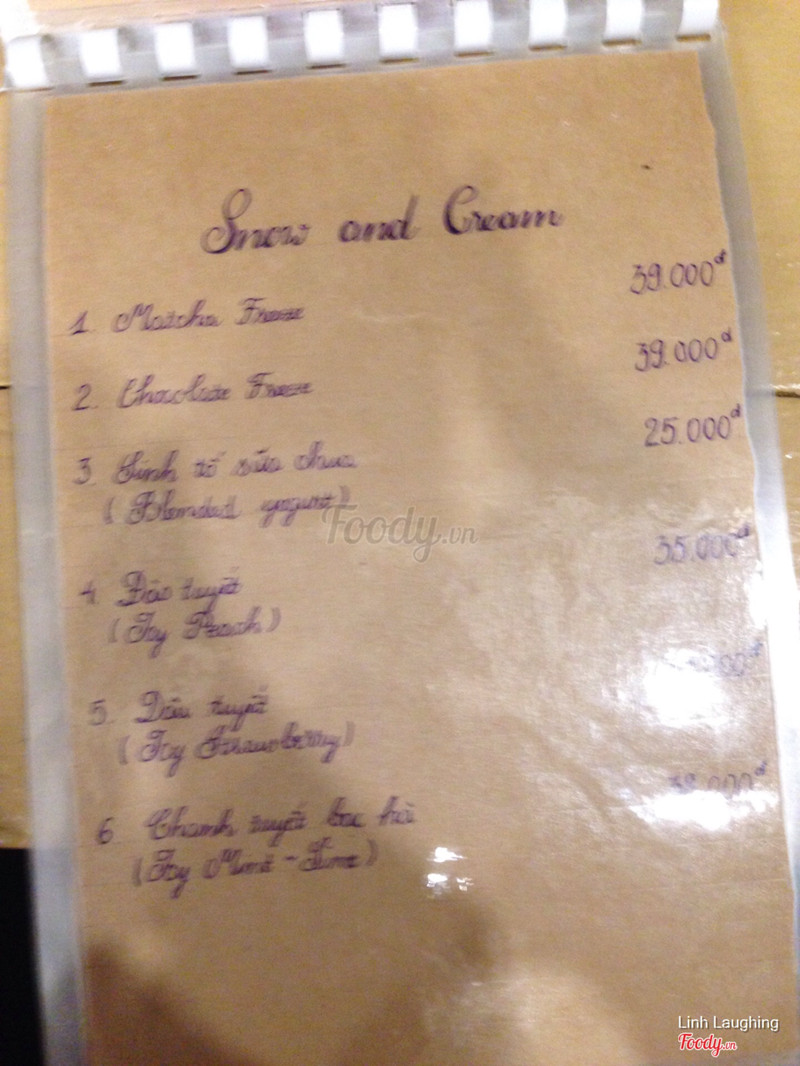 Snow and Cream
1. Matcha Freeze 39.000đ
2. Chocolate Freeze 39.000đ
3. Sinh tố sữa chua 25.000đ
(Blended yogurt)
Foody.vn
4. Đào tuyết 35.000đ
(Icy Peach)
5. Dâu tuyết
(Icy Strawberry)
6. Chanh tuyết bạc hà 38.000đ
(Icy Mint - Lime)
Linh Laughing
Foody.vn